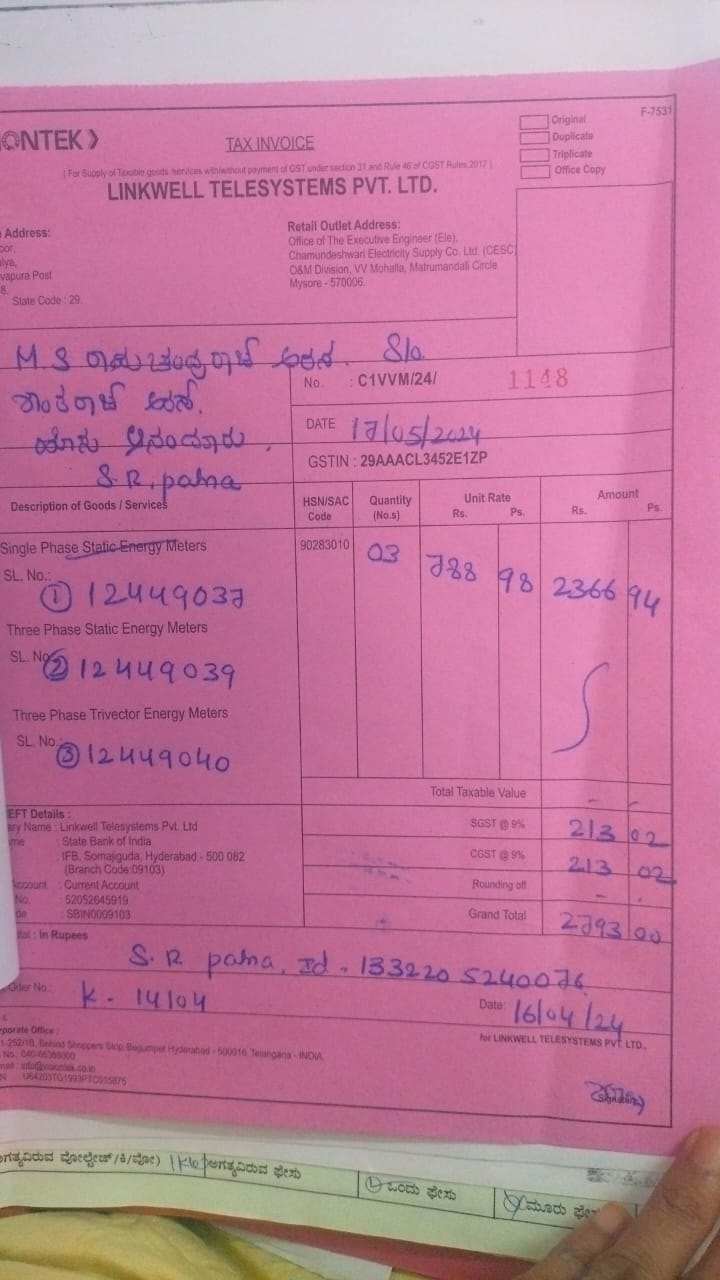 ONTEK
TAX INVOICE
Original
Duplicate
Triplicate
Office Copy
F-7531
( For Supply of Taxable goods /services with/without payment of GST under section 31 and Rule 46 of CGST Rules 2017 )
LINKWELL TELESYSTEMS PVT. LTD.
Address:
oor,
lya,
vapura Post
8.
State Code : 29.
Retail Outlet Address:
Office of The Executive Engineer (Ele),
Chamundeshwari Electricity Supply Co. Ltd. (CESC)
O&M Division, VV Mohalla, Matrumandali Circle
Mysore - 570006.
M.S ರಾಮಚಂದ್ರರಾಜ್ ಅರಸ್. S/o.
ಕಾಂತರಾಜ್ ಅರಸ್.
S.R. patna
No. : C1VVM/24/ 1148
DATE 17/05/2024
GSTIN : 29AAACL3452E1ZP
Description of Goods / Services HSN/SAC Code Quantity (No.s) Unit Rate Rs. Ps. Amount Rs. Ps.
Single Phase Static Energy Meters 90283010 03 788 98 2366 94
SL. No.:
① 12449037
Three Phase Static Energy Meters
SL. No.: ② 12449039
Three Phase Trivector Energy Meters
SL. No.: ③ 12449040
Total Taxable Value - -
SGST @ 9% 213 02
CGST @ 9% 213 02
Rounding off - .
Grand Total 2793 00
EFT Details :
ary Name : Linkwell Telesystems Pvt. Ltd
me : State Bank of India
IFB, Somajiguda, Hyderabad - 500 082
(Branch Code:09103)
Account : Current Account
No. : 52052645919
de : SBIN0009103
tal : In Rupees
S.R patna, Id - 133220 5240076
Order No.: K - 14/04 Date: 16/04/24
for LINKWELL TELESYSTEMS PVT. LTD.,
porate Office :
1-252/1B, Behind Shoppers Stop, Begumpet Hyderabad - 500016, Telangana - INDIA
No. 040-66388000
mail : info@visiontek.co.in
N U64203TG1993PTC015875
Signatory
ಅಗತ್ಯವಿರುವ ವೋಲ್ಟೇಜ್/ಕಿ/ವೋ) 1KW ಅಗತ್ಯವಿರುವ ಫೇಸು ಒಂದು ಫೇಸು ಮೂರು ಫೇಸು